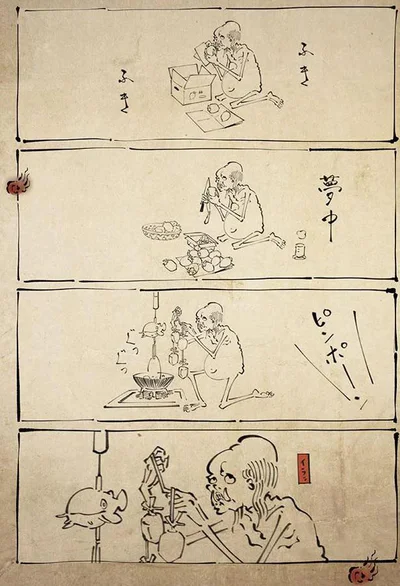 ふき
ふき
夢中
ピンポーン
ぐつ
ぐつ
イラッ